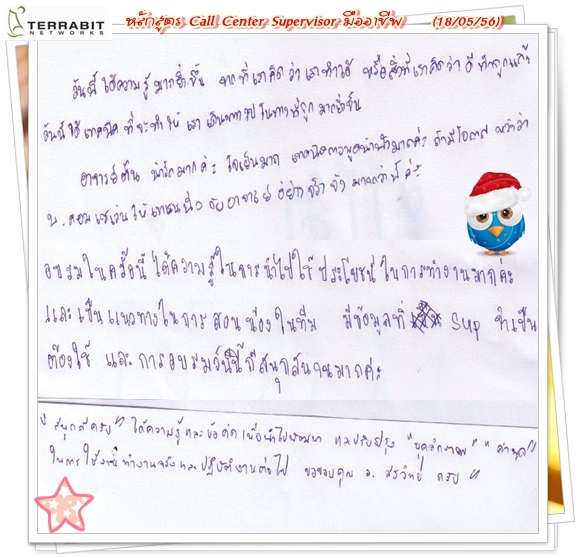 TERRABIT
NETWORKS
หลักสูตร Call Center Supervisor มืออาชีพ (18/05/56)
วันนี้ ได้ความรู้ มากยิ่งขึ้น จากที่เราคิดว่า เราทำได้ หรือสิ่งที่เราคิดว่า ดี
วันนี้ได้ เทคนิค ที่จะทำให้ เรา เดินทางไปในทางที่ถูก มากยิ่งขึ้น
อาจารย์ต้น น่ารักมากค่ะ ใจเย็นมาก เทคนิคการพูดน่าฟังมากค่ะ ถ้ามีโอกาส หวังว่า
บ. คอมเซเว่น ให้ กับอาจารย์ อย่าง จริง จัง มากกว่านี้ ค่ะ
อบรมในครั้งนี้ ได้ความรู้ในการนำไปใช้ประโยชน์ ในการทำงานมากค่ะ
และเป็นแนวทางในการสอนน้องในทีม มีข้อมูลที่ Sup จำเป็น
ต้องใช้ และการอบรมวันนี้ก็สนุกสนานมากค่ะ
"สนุกดีครับ" ได้ความรู้และข้อคิด เพื่อนำไปพัฒนา และปรับปรุง "บุคลิกภาพ" "คำพูด"
ในการใช้ ทำงานจริงและปฏิบัติงานต่อไป ขอขอบคุณ อ. ครับ"